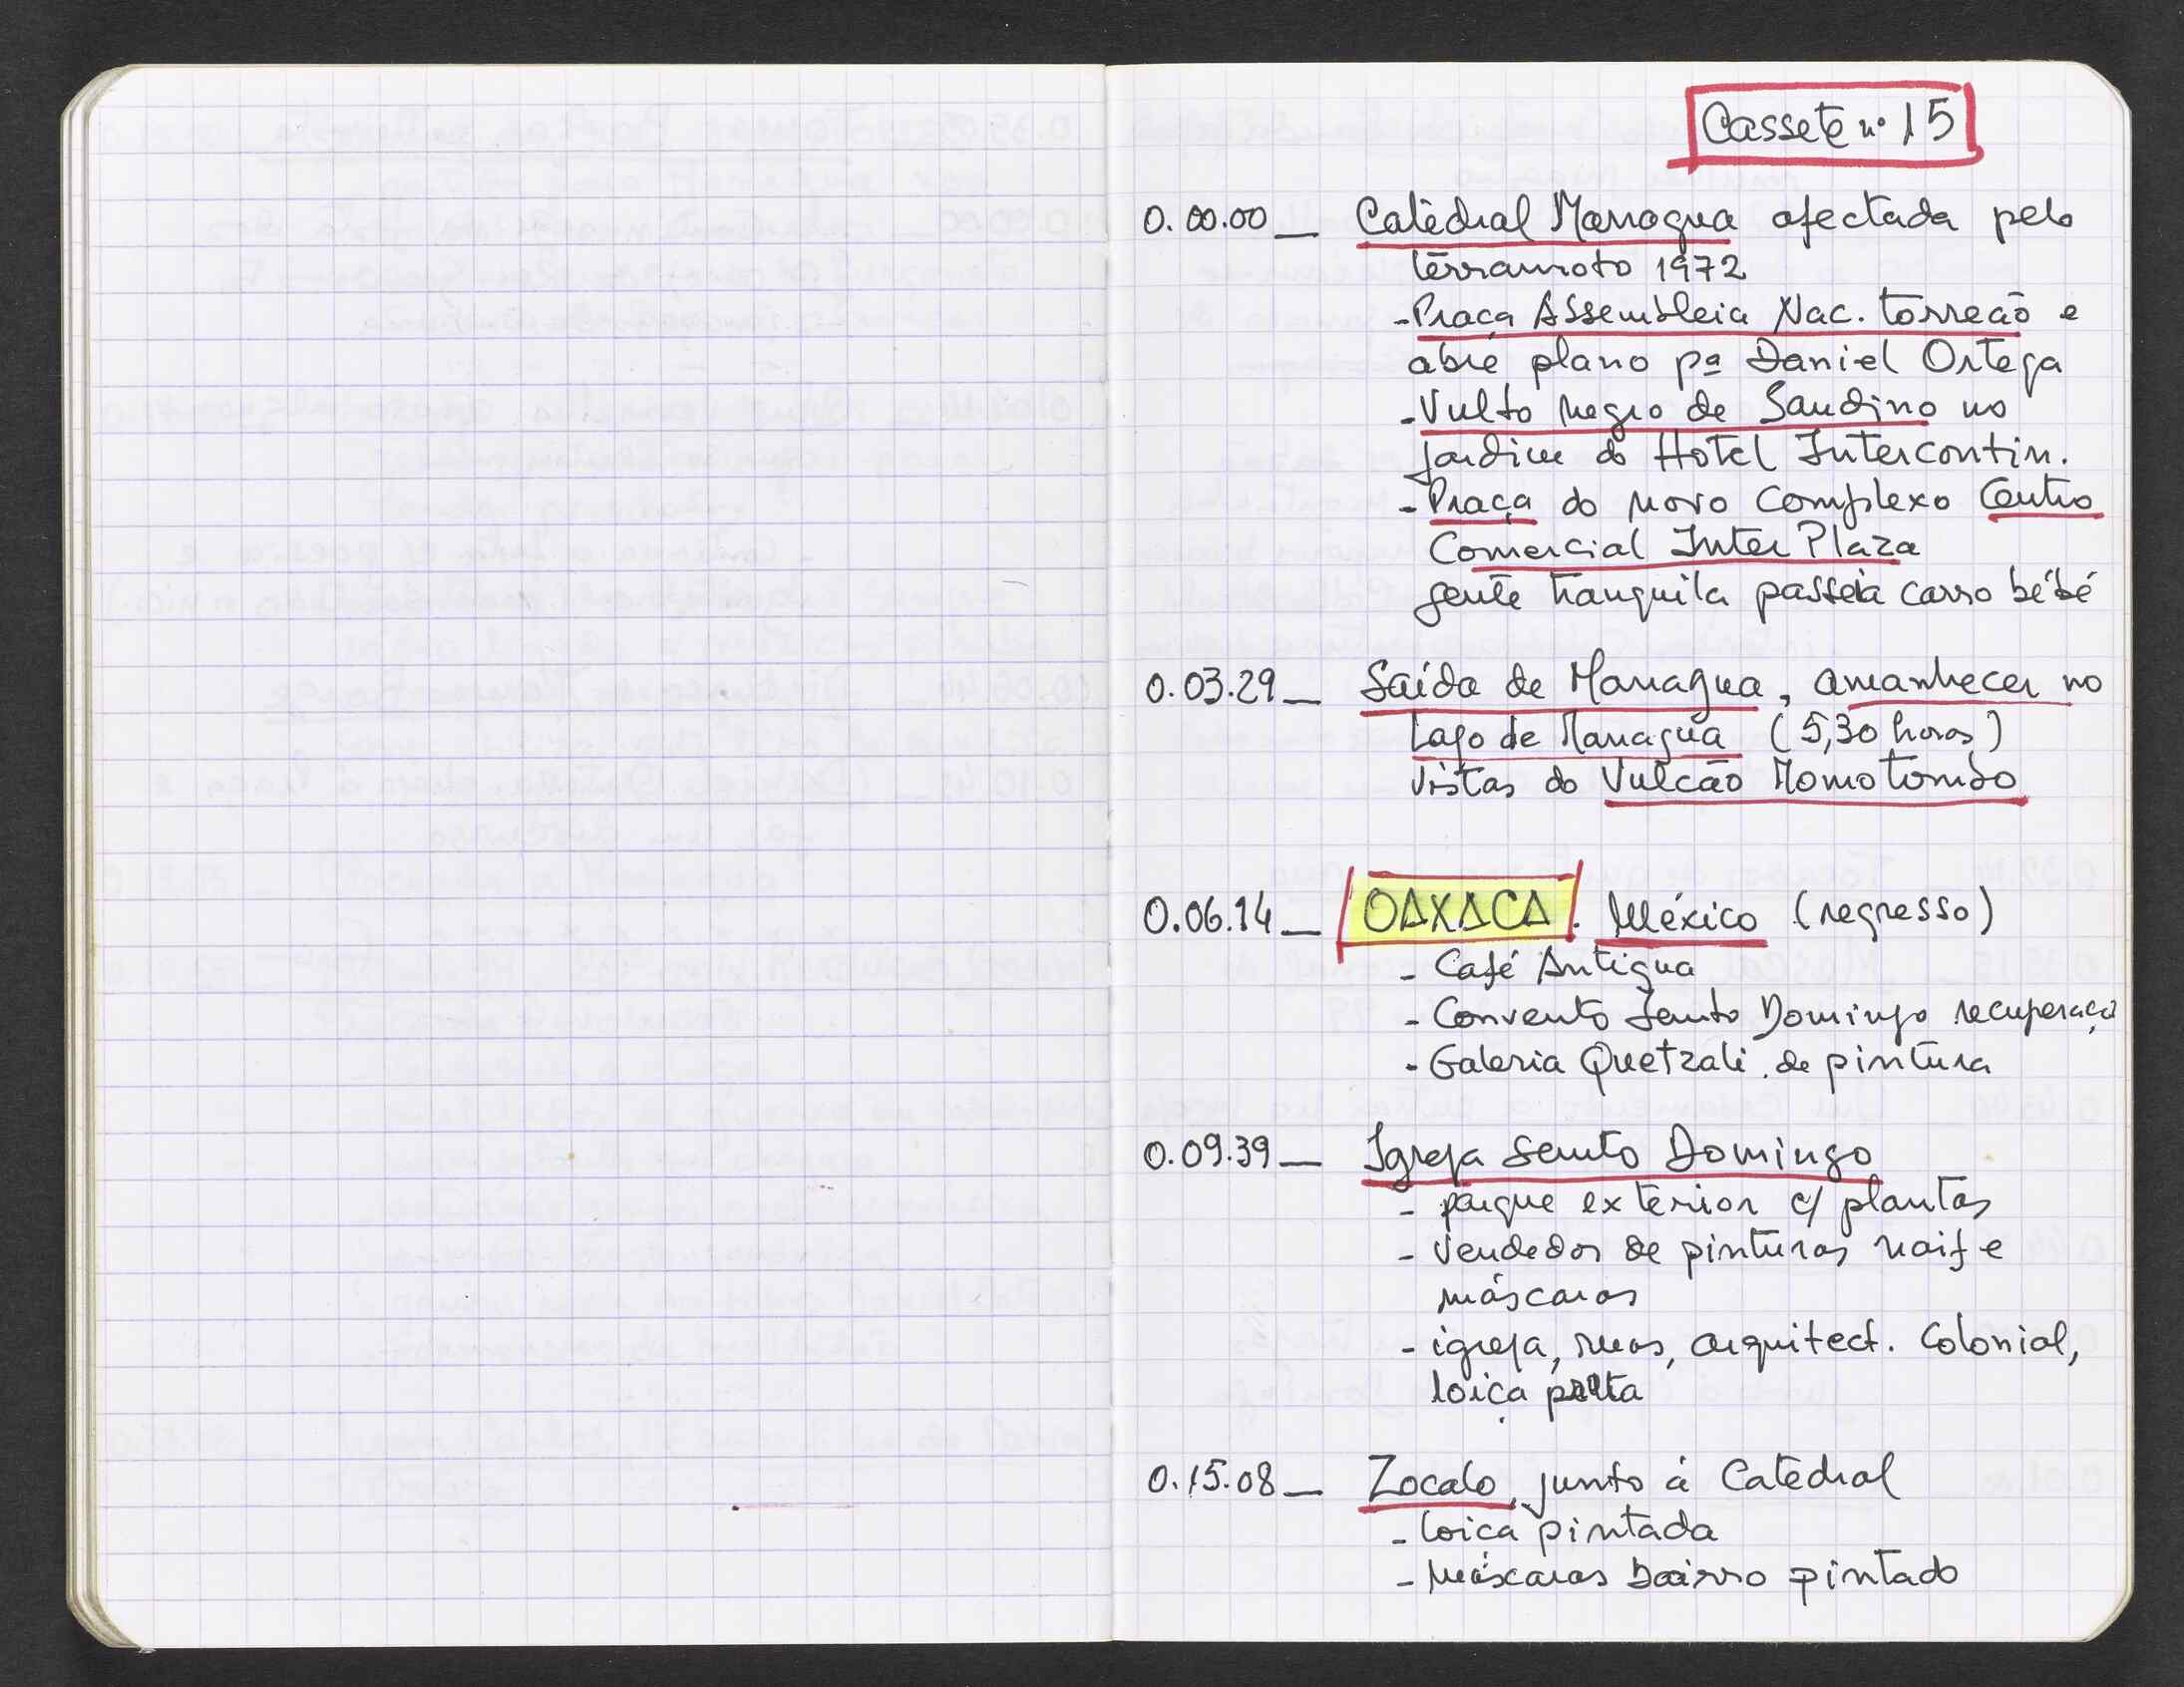 Cassete nº 15
0.00.00 _ Catedral Managua afectada pelo
terramoto 1972
- Praça Assembleia Nac. torreão e
abre plano pª Daniel Ortega
- Vulto negro de Sandino no
jardim do Hotel Intercontin.
- Praça do novo complexo Centro
Comercial Inter Plaza
gente tranquila passeia carro bébé
0.03.29 _ Saída de Managua, amanhecer no
Lago de Managua (5,30 horas)
vistas do Vulcão Momotombo
0.06.14 _ OAXACA. México (regresso)
- Café Antigua
- Convento Santo Domingo recuperaçã
- Galeria Quetzali. de pintura
0.09.39 _ Igreja Santo Domingo
- parque exterior c/ plantas
- vendedor de pinturas naif e
máscaras
- igreja, ruas, arquitect. Colonial,
loiça preta
0.15.08 _ Zocalo, junto á Catedral
- loiça pintada
- Máscaras barro pintado